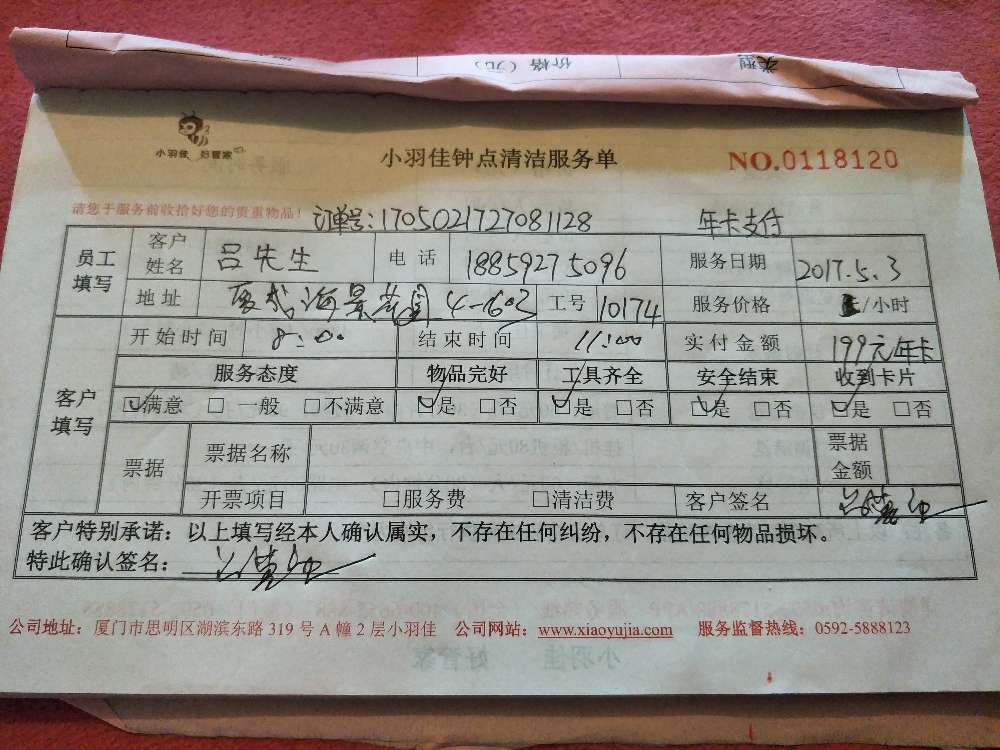 类型 价格（元）
小羽佳 好管家
小羽佳钟点清洁服务单
NO.0118120
请您于服务前收拾好您的贵重物品！ 订单号:1705021727081128 年卡支付
员工填写 客户姓名 吕先生 电话 18859275096 服务日期 2017.5.3
地址 海景花园 4-1603 工号 10174 服务价格 /小时
客户填写 开始时间 8:00 结束时间 11:00 实付金额 199元年卡
服务态度 物品完好 工具齐全 安全结束 收到卡片
☑满意 □一般 □不满意 ☑是 □否 ☑是 □否 ☑是 □否 ☑是 □否
票据 票据名称 票据金额
开票项目 □服务费 □清洁费 客户签名
客户特别承诺：以上填写经本人确认属实，不存在任何纠纷，不存在任何物品损坏。
特此确认签名：
公司地址：厦门市思明区湖滨东路 319 号 A 幢 2 层小羽佳 公司网站：www.xiaoyujia.com 服务监督热线：0592-5888123